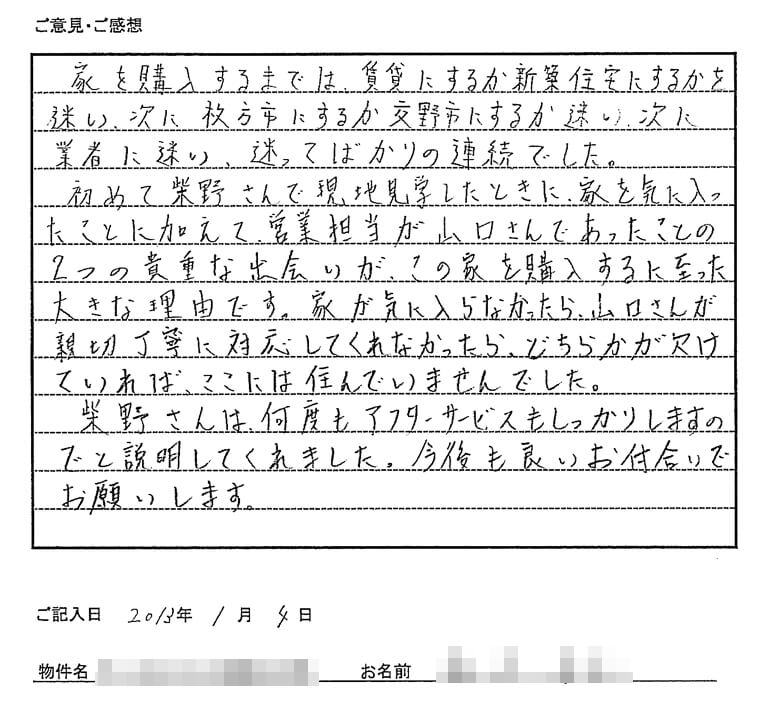 ご意見・ご感想
家を購入するまでは、賃貸にするか新築住宅にするかを
迷い、次に枚方市にするか交野市にするか迷い、次に
業者に迷い、迷ってばかりの連続でした。
初めて柴野さんで現地見学したときに、家を気に入っ
たことに加えて、営業担当が山口さんであったことの
2つの貴重な出会いが、この家を購入するに至った
大きな理由です。家が気に入らなかったら、山口さんが
親切丁寧に対応してくれなかったら、どちらかが欠け
ていれば、ここには住んでいませんでした。
柴野さんは、何度もアフターサービスもしっかりしますの
でと説明してくれました。今後も良いお付合いで
お願いします。
ご記入日 2013年 1月 4日
物件名 お名前